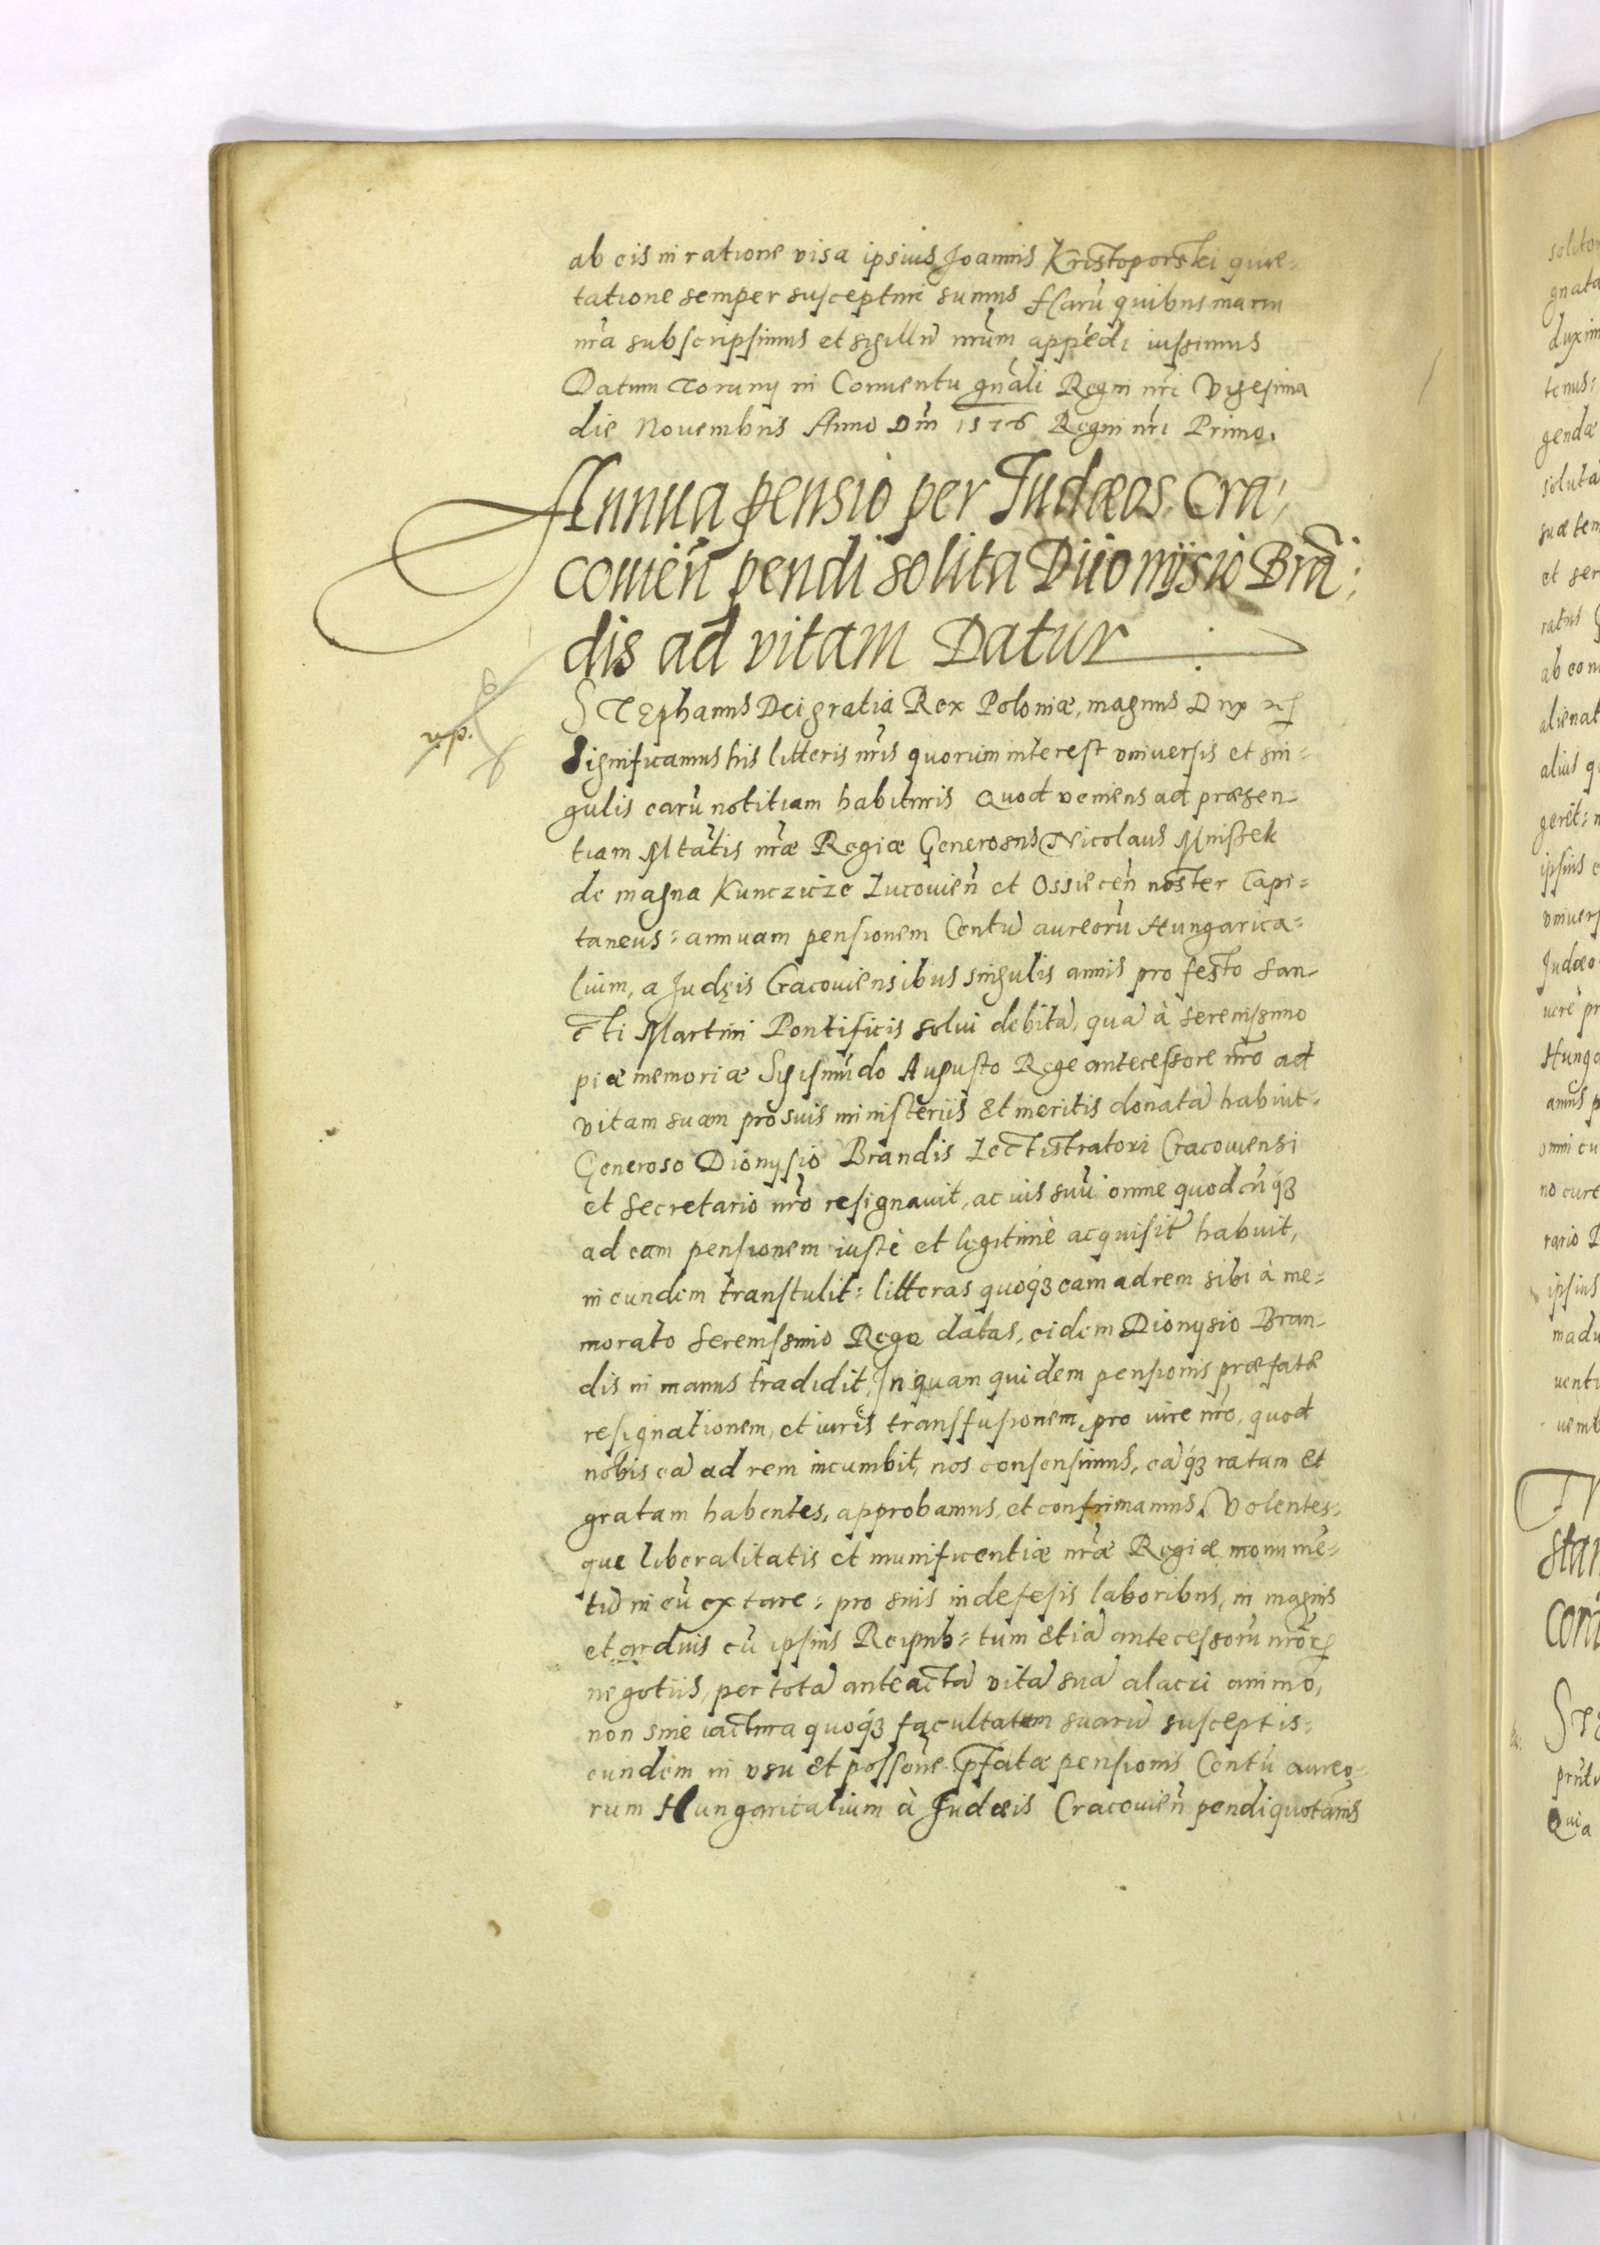 ab eis in ratione visa ipsius Joannis Kristoporski quie-
tatione semper suscepturi sumus Harū quibus manu
nrā subscripsimus et sigillū nrūm appēdi iussimus
Datum Torunij in Conuentu gnāli Regni nrī Vigesima
die Nouembris Anno Dni 1576 Regni nrī Primo.
Annua pensio per Judæos Cra-
couieñ pendi solita Diionijsio Brā-
dis ad vitam Datur
STEphanus Dei gratia Rex Poloniæ, magnus Dux
Significamus his litteris nrīs quorum interest vniuersis et sin=
gulis earū notitiam habituris Quod veniens ad præsen-
tiam Mtātis nræ Regiæ Generosus Nicolaus Mnissek
de magna Kunczicze Lucouieñ et Ossiecen noster Capi=
taneus: annuam pensionem Centū aureorū Hungarica=
lium, a Judęis Cracouiensibus singulis annis pro festo San-
cti Martini Pontificis solui debitā, quā à serenissimo
piæ memoriæ Sigismūdo Augusto Rege antecessore nrō ad
vitam suam pro suis ministeriis et meritis donatā habuit.
Generoso Dionysio Brandis Lectistratori Cracouiensi
et Secretario nrō resignauit, ac ius suū omne quodcūq́3
ad eam pensionem iustè et legitimè acquisitū habuit,
in eundem transtulit: litteras quoq́3 eam ad rem sibi à me=
morato Serenissimo Rege datas, eidem Dionysio Bran-
dis in manus tradidit, In quam quidem pensionis præfatæ
resignationem, et iuris transfusionem, pro iure nrō, quod
nobis eā ad rem incumbit, nos consensimus, eāq́3 ratam et
gratam habentes, approbamus, et confirmamus. Volentes=
que liberalitatis et munificentiæ nræ Regiæ monumē=
tū in eū extare: pro suis indefesis laboribus, in magnis
et arduis cū ipsius Reipub: tum etiā antecessorū nrōr
negotiis, per totā anteactā vitā suā alacri animo,
non sine iactura quoq́3 facultatum suarū susceptis:
eundem in vsu et possone pfatæ pensionis Centū aureo-
rum Hungaricalium à Judæis Cracouieñ pendi quotānis